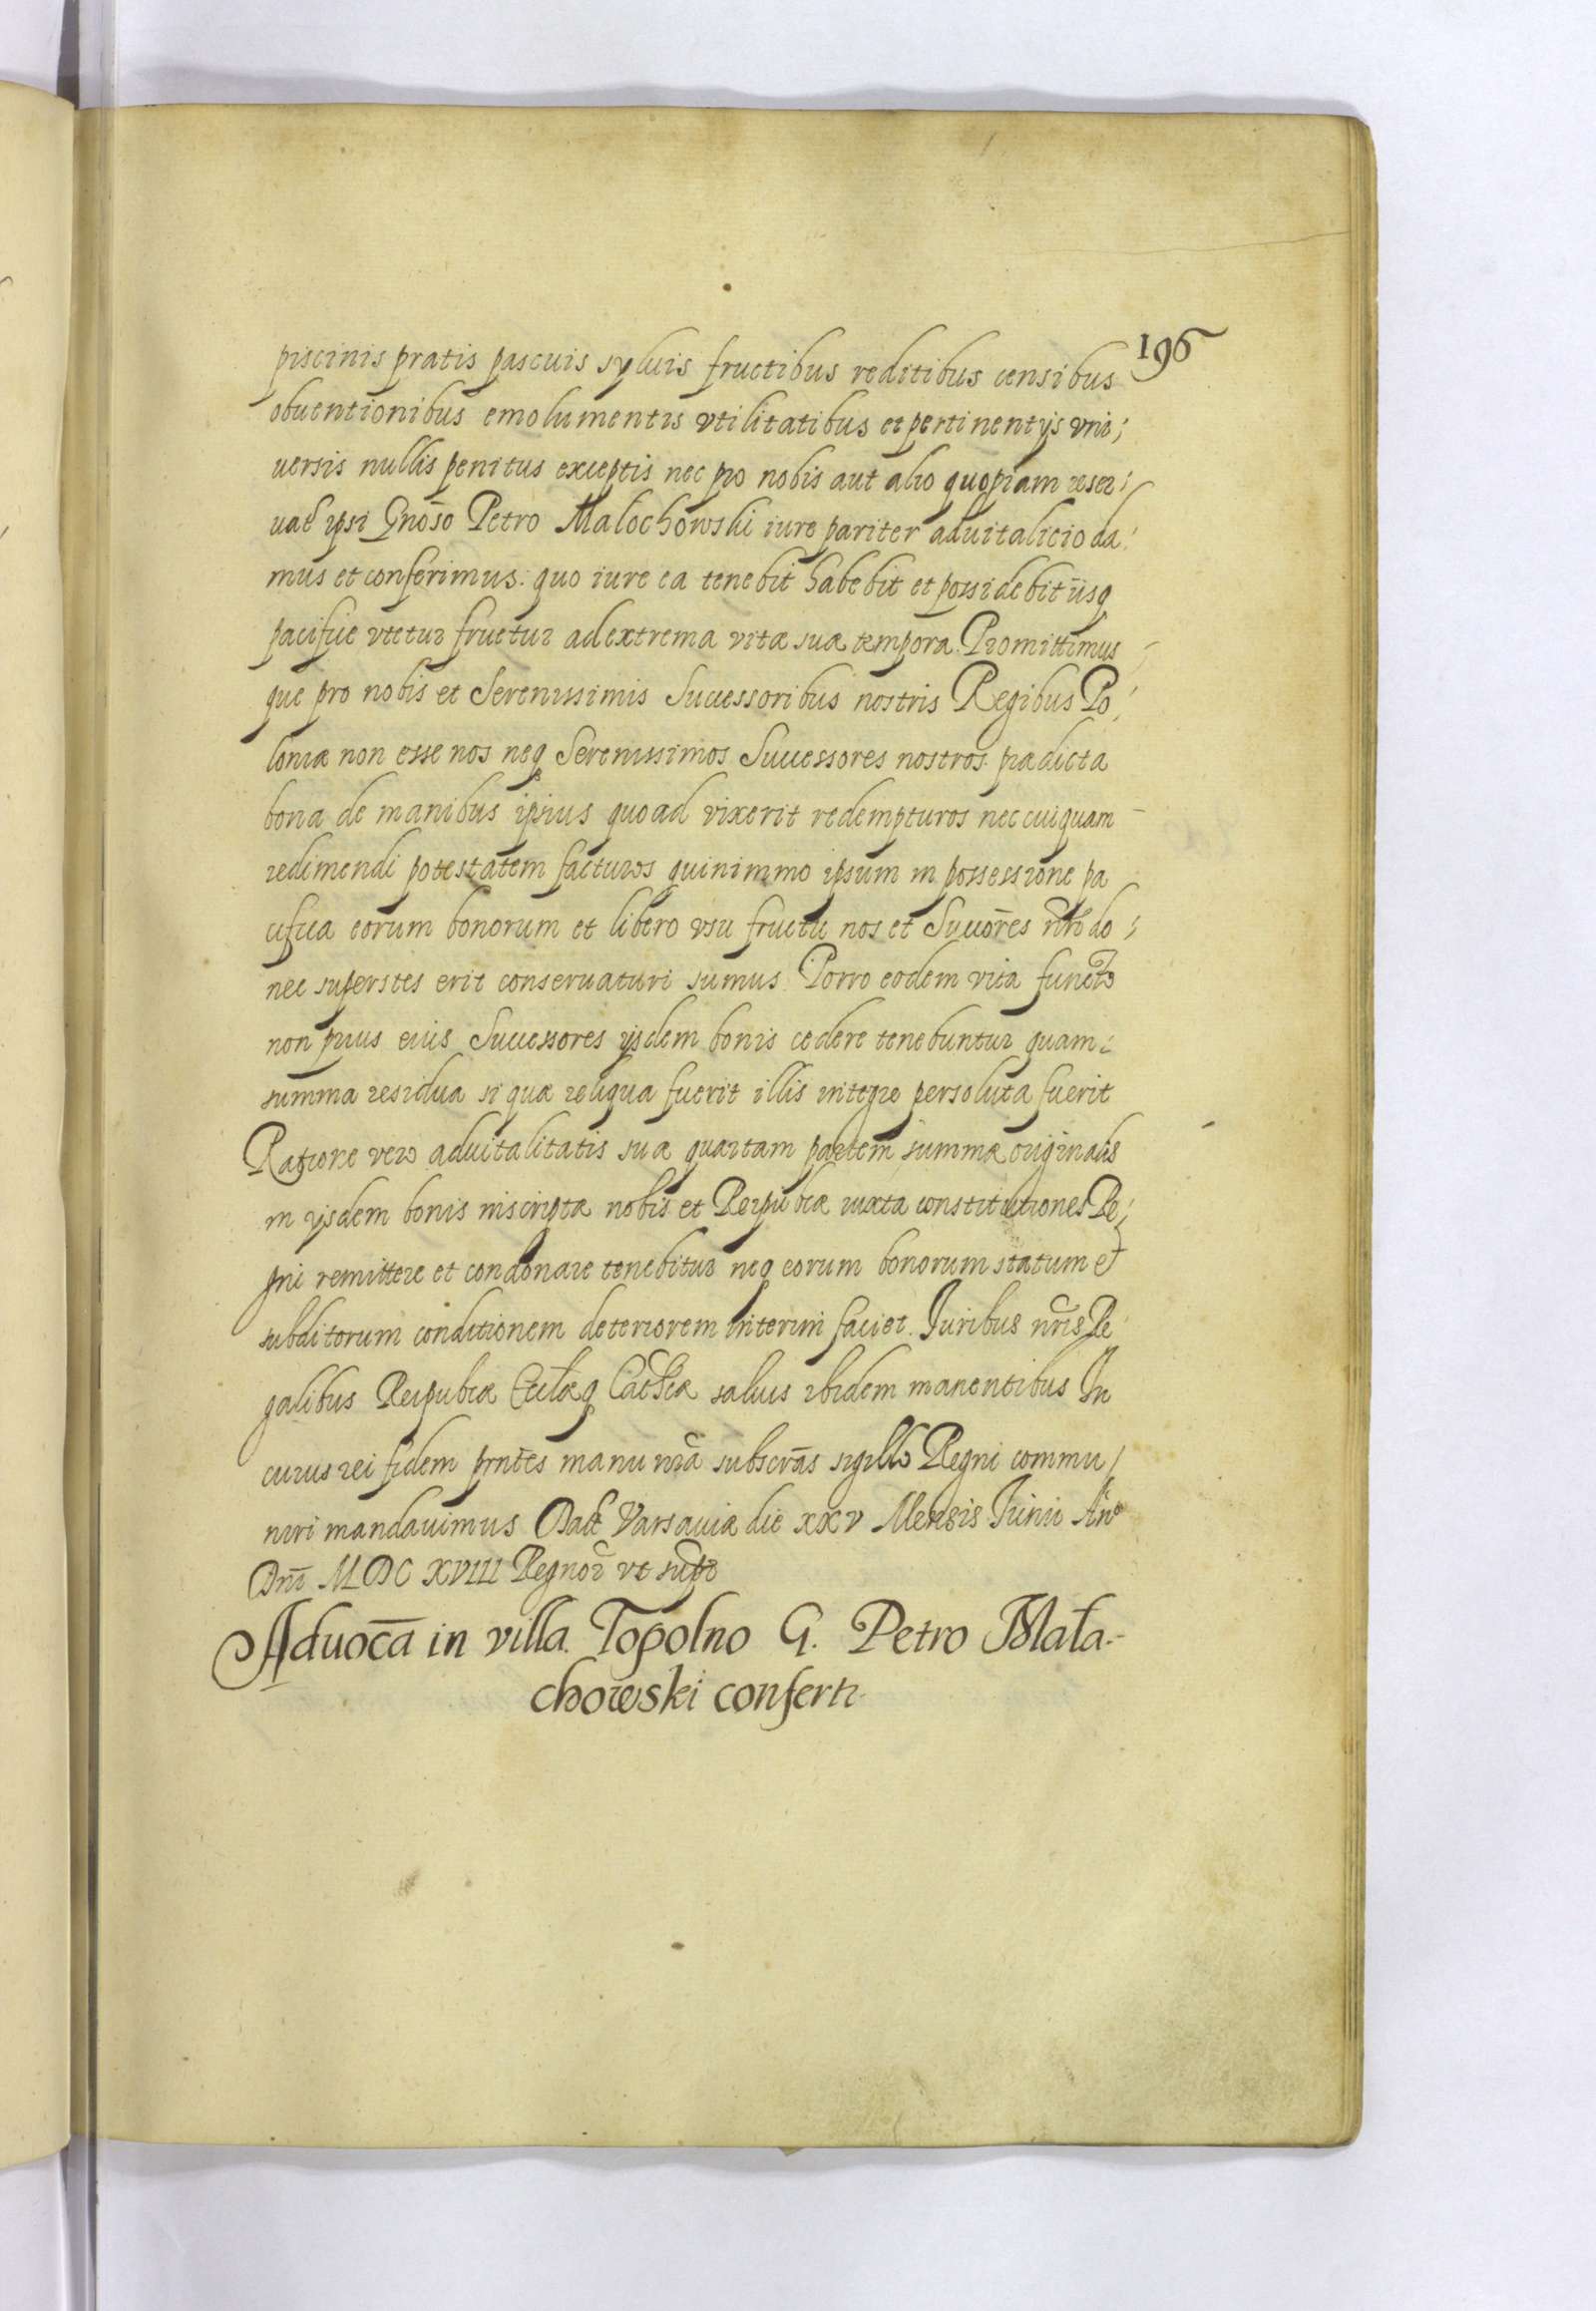 196
piscinis pratis pascuis syluis fructibus reditibus censibus
obuentionibus emolumentis vtilitatibus et pertinentijs vni;
uersis nullis penitus exceptis nec pro nobis aut alio quopiam reser;
uat ipsi Gnōso Petro Malochowski iure pariter aduitalicio da
mus et conferimus: quo iure ea tenebit habebit et possidebit ijsq
pacifice vtetur fruetur ad extrema vitæ suæ tempora Promittimus
que pro nobis et Serenissimis Successoribus nostris Regibus Po
loniæ non esse nos neq Serenissimos Successores nostros prædicta
bona de manibus ipsius quoad vixerit redempturos nec cuiquam
redimendi potestatem facturos quinimmo ipsum in possessione pa
cifica eorum bonorum et libero vsu fructu nos et Succōres nrōs do;
nec superstes erit conseruaturi sumus. Porro eodem vita functo
non prius eius Successores ijsdem bonis cedere tenebuntur quam
summa residua si quæ reliqua fuerit illis integre persoluta fuerit
Ratione vero aduitalitatis suæ quartam partem summæ originalis
in ijsdem bonis inscriptæ nobis et Reipubcæ iuxta constitutiones Re;
gni remittere et condonare tenebitur neq eorum bonorum statum et
subditorum conditionem deteriorem interim faciet. Juribus nrīs Re
galibus Reipubcæ Ecclæq Cathcæ saluis ibidem manentibus In
cuius rei fidem prntēs manu nrā subscrās sigillo Regni commu
niri mandauimus Dat Varsauiæ die XXV Mensis Junij Anº
Dnī MDCXVIII Regnor vt supr
Aduocā in villa Topolno G. Petro Mała-
chowski confert.